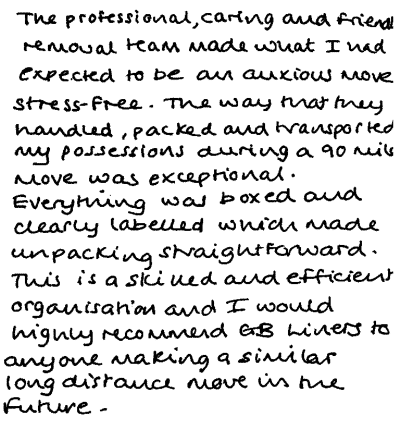 The professional, caring and friend
removal team made what I had
expected to be an anxious move
stress-free. The way that they
handled, packed and transported
my possessions during a 90 mile
move was exceptional.
Everything was boxed and
clearly labelled which made
unpacking straightforward.
This is a skilled and efficient
organisation and I would
highly recommend GB Liners to
anyone making a similar
long distance move in the
future.